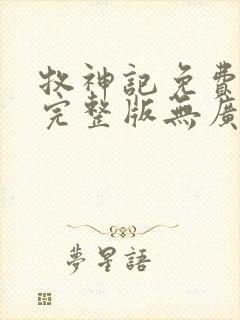 牧神記免費
完整版無廣
夢星語